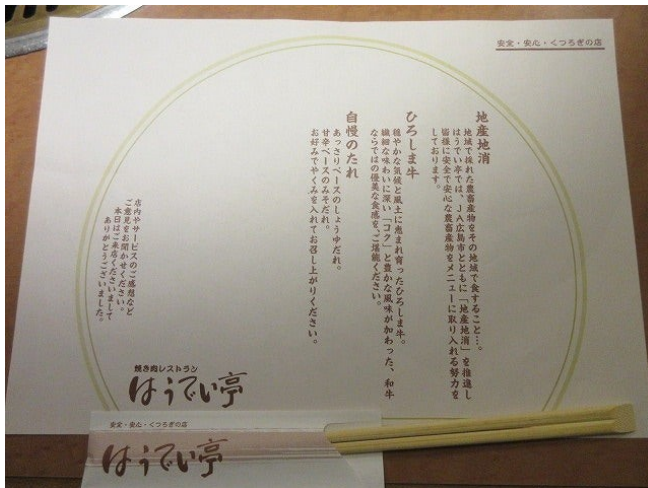 安全・安心・くつろぎの店
地産地消
地域で採れた農畜産物をその地域で食すること…。
はうでい亭では、JA広島市とともに「地産地消」を推進し
皆様に安全で安心な農畜産物をメニューに取り入れる努力を
しております。
ひろしま牛
穏やかな気候と風土に恵まれ育ったひろしま牛。
繊細な味わいに深い「コク」と豊かな風味が加わった、和牛
ならではの優美な食感を、ご堪能ください。
自慢のたれ
あっさりベースのしょうゆだれ。
甘辛ベースのみそだれ。
お好みでやくみを入れてお召し上がりください。
店内やサービスのご感想など
ご意見をお聞かせください。
本日はご来店くださいまして
ありがとうございました。
焼き肉レストラン
はうでい亭
安全・安心・くつろぎの店
はうでい亭